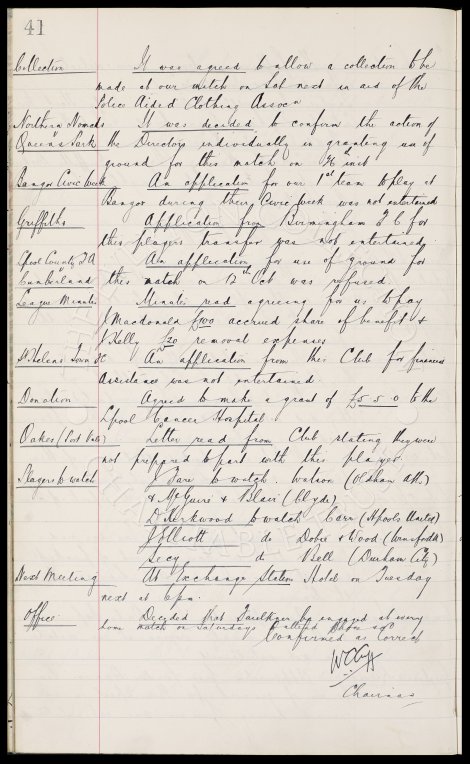 41
Collection It was agreed to allow a collection to be
made at our match on Sat next in aid of the
Police Aided Clothing Assocn
Northern Nomads It was decided to confirm the action of
v Queens Park the Directors individually in granting use of
ground for this match on inst
Bangor Civic Week An application for our 1st team to play at
Bangor during their Civic week was not entertained
Griffiths Application from Birmingham F C for
this players transfer was not entertained.
Lpool County F.A. An application for use of ground for
v Cumberland this match on 12th Oct was refused.
League Minutes Minutes read agreeing for us to pay
J Macdonald accrued share of benefit &
J Kelly £20 removal expenses
St Helens Town FC An application from this Club for financial
assistance was not entertained.
Donation Agreed to make a grant of £5 5 0 to the
Lpool Cancer Hospital
Oakes (Port Vale) Letter read from Club stating they were
not prepared to part with this player.
Players to watch to watch Watson (Oldham Ath.)
& McGuire & Blair (Clyde)
D Kirkwood to watch (Hpools United)
J Elliott do Dobie & Wood
Secy do Bell (Durham City)
Next Meeting At Exchange Station Hotel on Tuesday
next at 6pm.
Office Decided that Faulkner be engaged at every
home match on Saturdays
Confirmed as correct
W C Cuff
Chairman